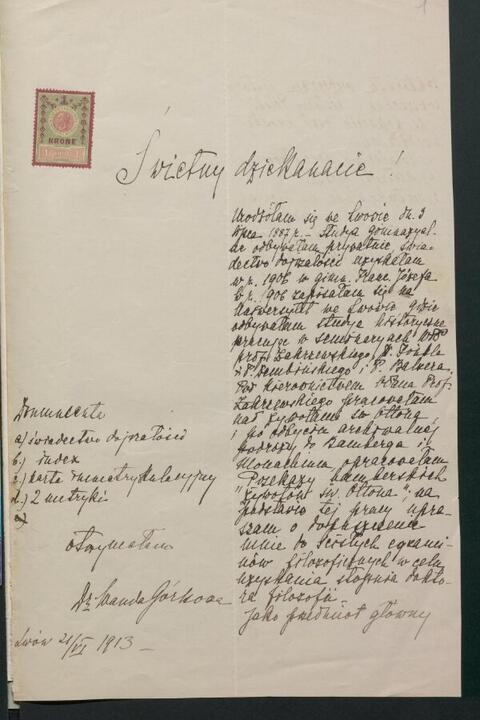 1
1
KRONE
Świetny dziekanacie!
Urodziłam się we Lwowie dn. 3
lipca 1887 r. – Studya gimnazyal-
ne odbywałam prywatnie, świa-
dectwo dojrzałości uzyskałam
w r. 1906 w gimn. Franc. Józefa
W r. 1906 zapisałam się na
Uniwersytet we Lwowie gdzie
odbywałam studya historyczne
pracując w seminaryach WP
prof. Zakrzewskiego, D. Finkla
Dembińskiego i P. Balzera.
Pod kierownictwem Prof.
Zakrzewskiego pracowałam
nad Żywotami św. Ottona,
i po odbyciu archiwalnej
podróży do Bamberga i
Monachium opracowałam
"Przekazy bamberskich
Żywotów św. Ottona"; na
podstawie tej pracy upra-
szam o dopuszczenie
mnie do ścisłych egzami-
nów filozoficznych w celu
uzyskania stopnia dokto-
ra filozofii.
Jako przedmiot główny
Dokumenta
a) świadectwo dojrzałości
b) index
c) karta immatrykulacyjny
d) 2 metryki
e)
otrzymałam
Dr Wanda Górkowa
Lwów 21/VI 1913 –